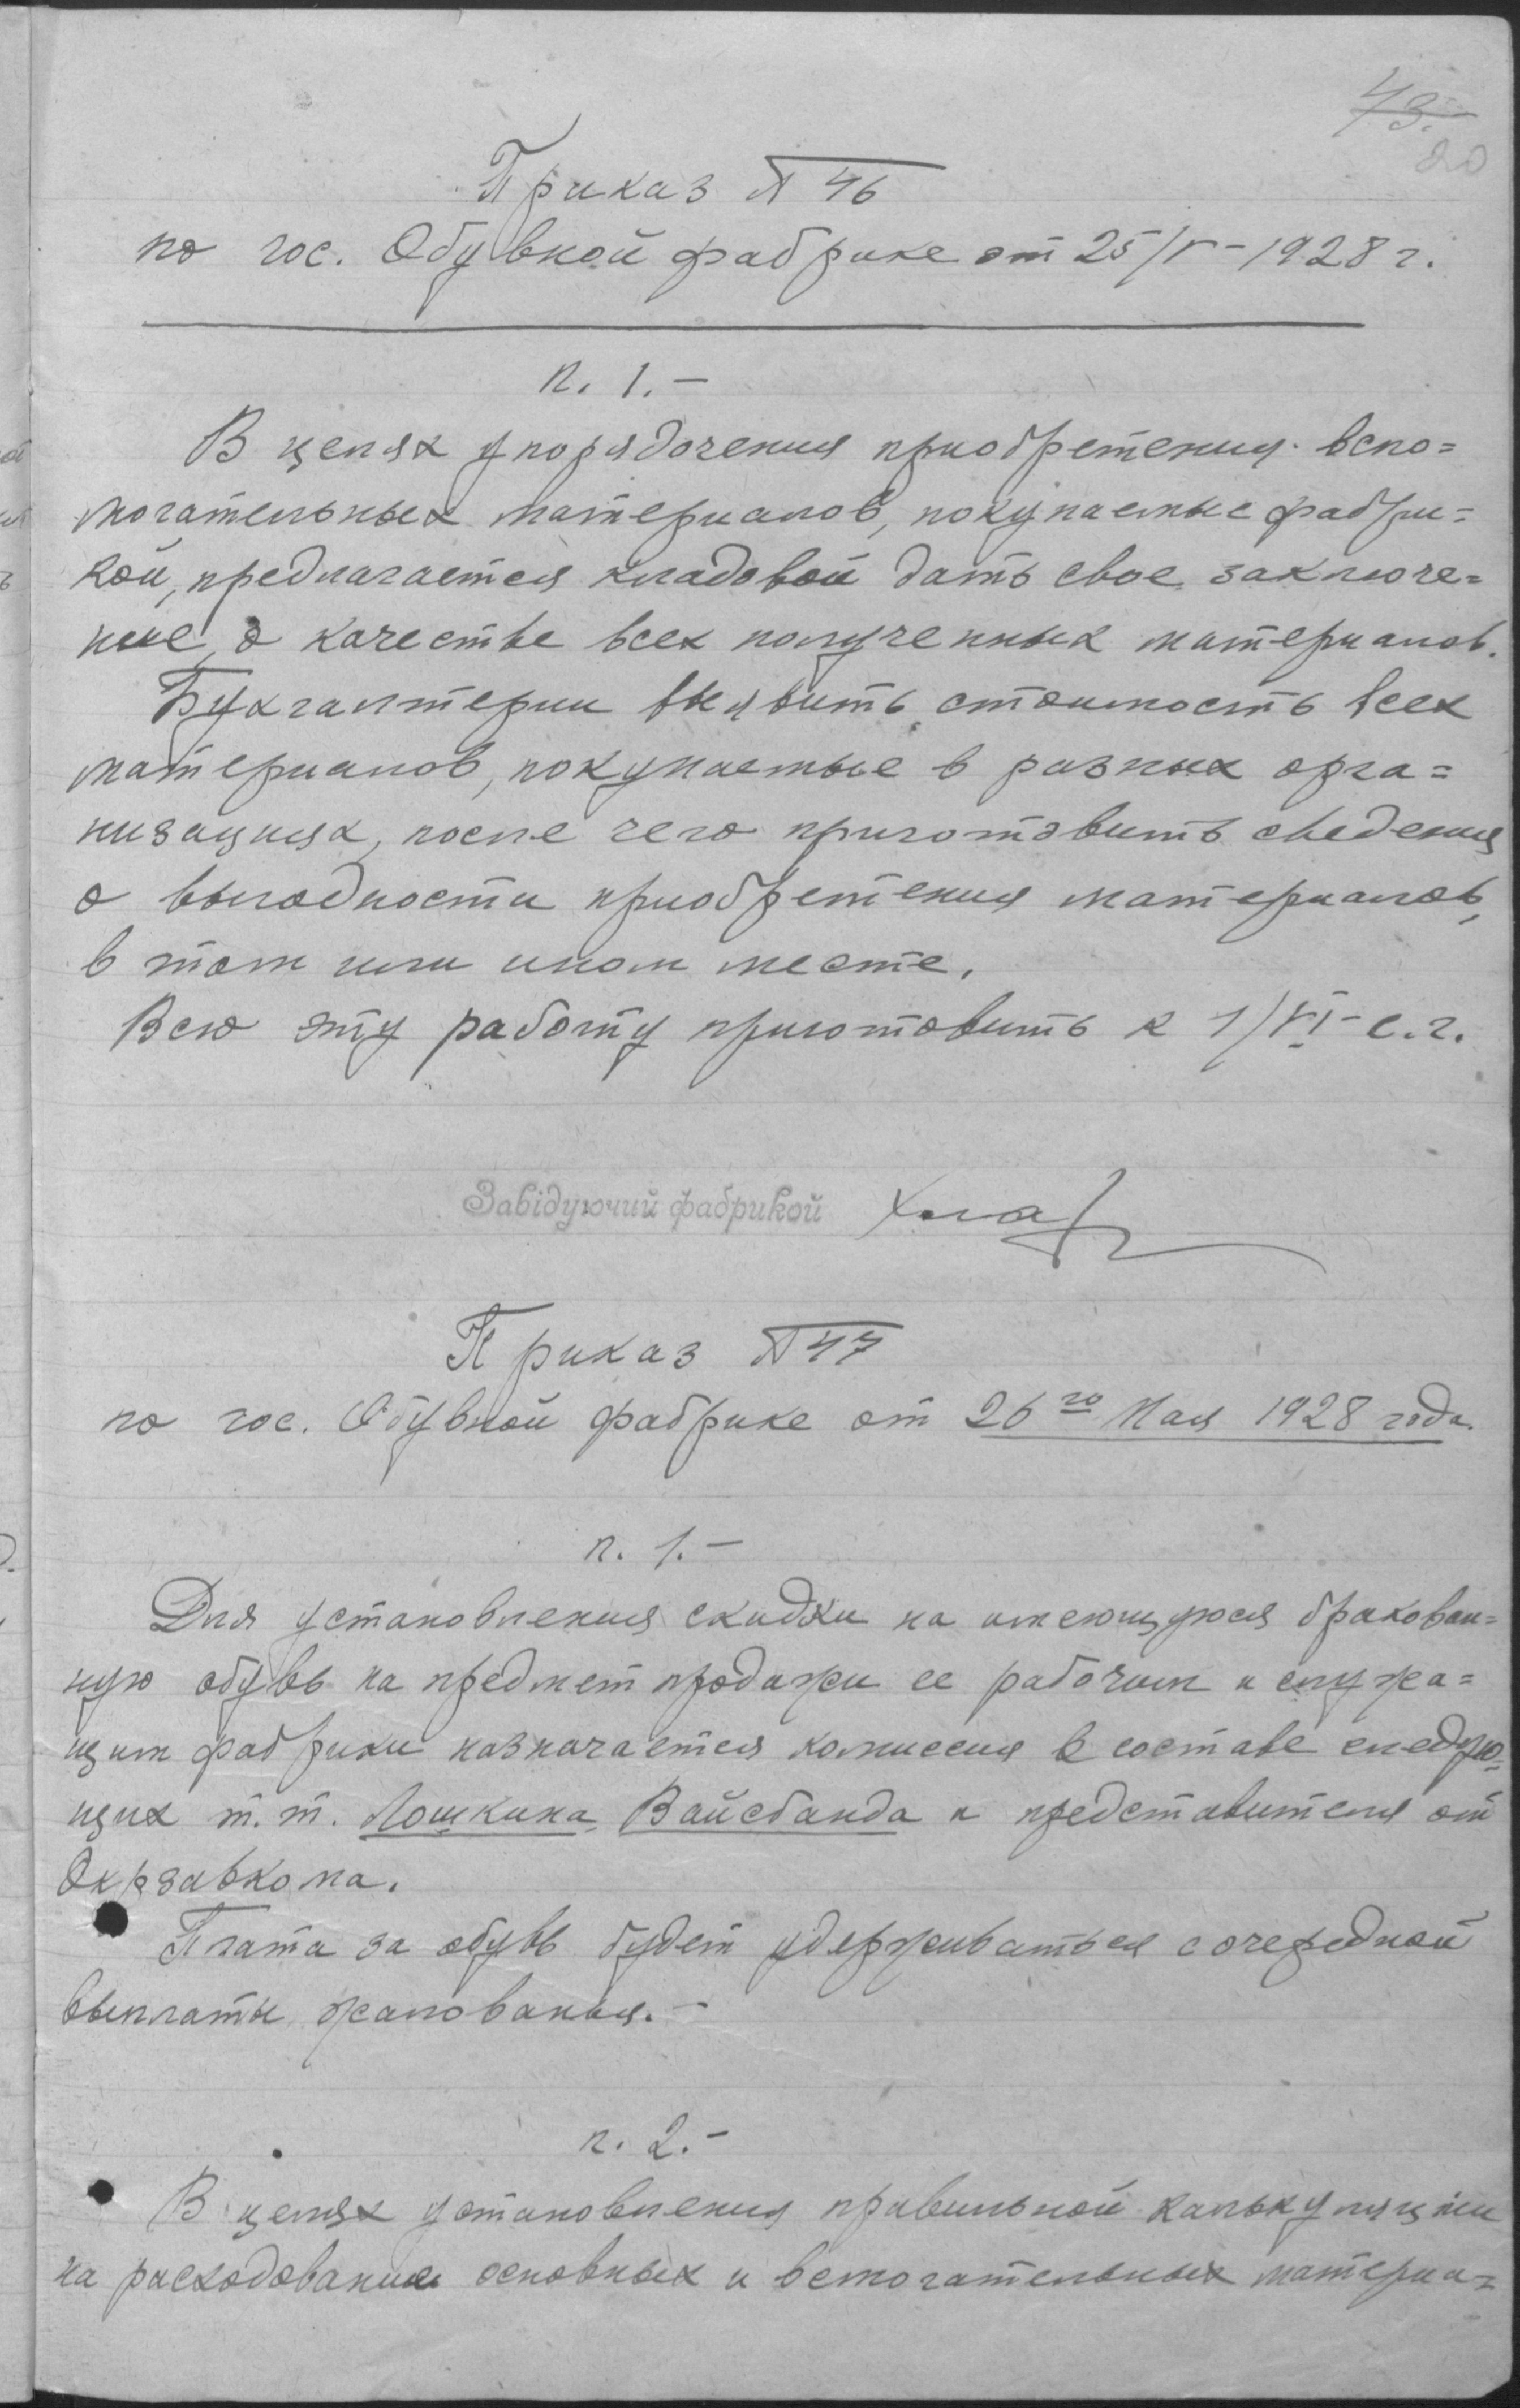 43.
20
Приказ № 46
по гос. Обувной фабрике от 25/V-1928 г.
п. 1.-
В целях упорядочения приобретения вспо=
могательных материалов, покупаемые фабри=
кой, предлагается кладовой дать свое заключе=
ние, о качестве всех полученных материалов.
Бухгалтерии выявить стоимость всех
материалов, покупаемые в разных орга=
низациях, после чего приготовить сведения
о выгодности приобретения материалов,
в том или ином месте.
Всю эту работу приготовить к 1/VI-с.г.
Завідуючий фабрикой
Приказ № 47
по гос. Обувной фабрике от 26го Мая 1928 года.
п. 1.-
Для установления скидки на имеющуюся бракован=
ную обувь на предмет продажи ее рабочим и служа=
щим фабрики назначается комиссия в составе следую=
щих т.т. Лошкина, Вайсбанда и представителя от
Окрзавкома.
Плата за обувь будет удерживаться с очередной
выплаты жалованья.-
п. 2.-
В целях установления правильной калькуляции
на расходование основных и вспомогательных материа=